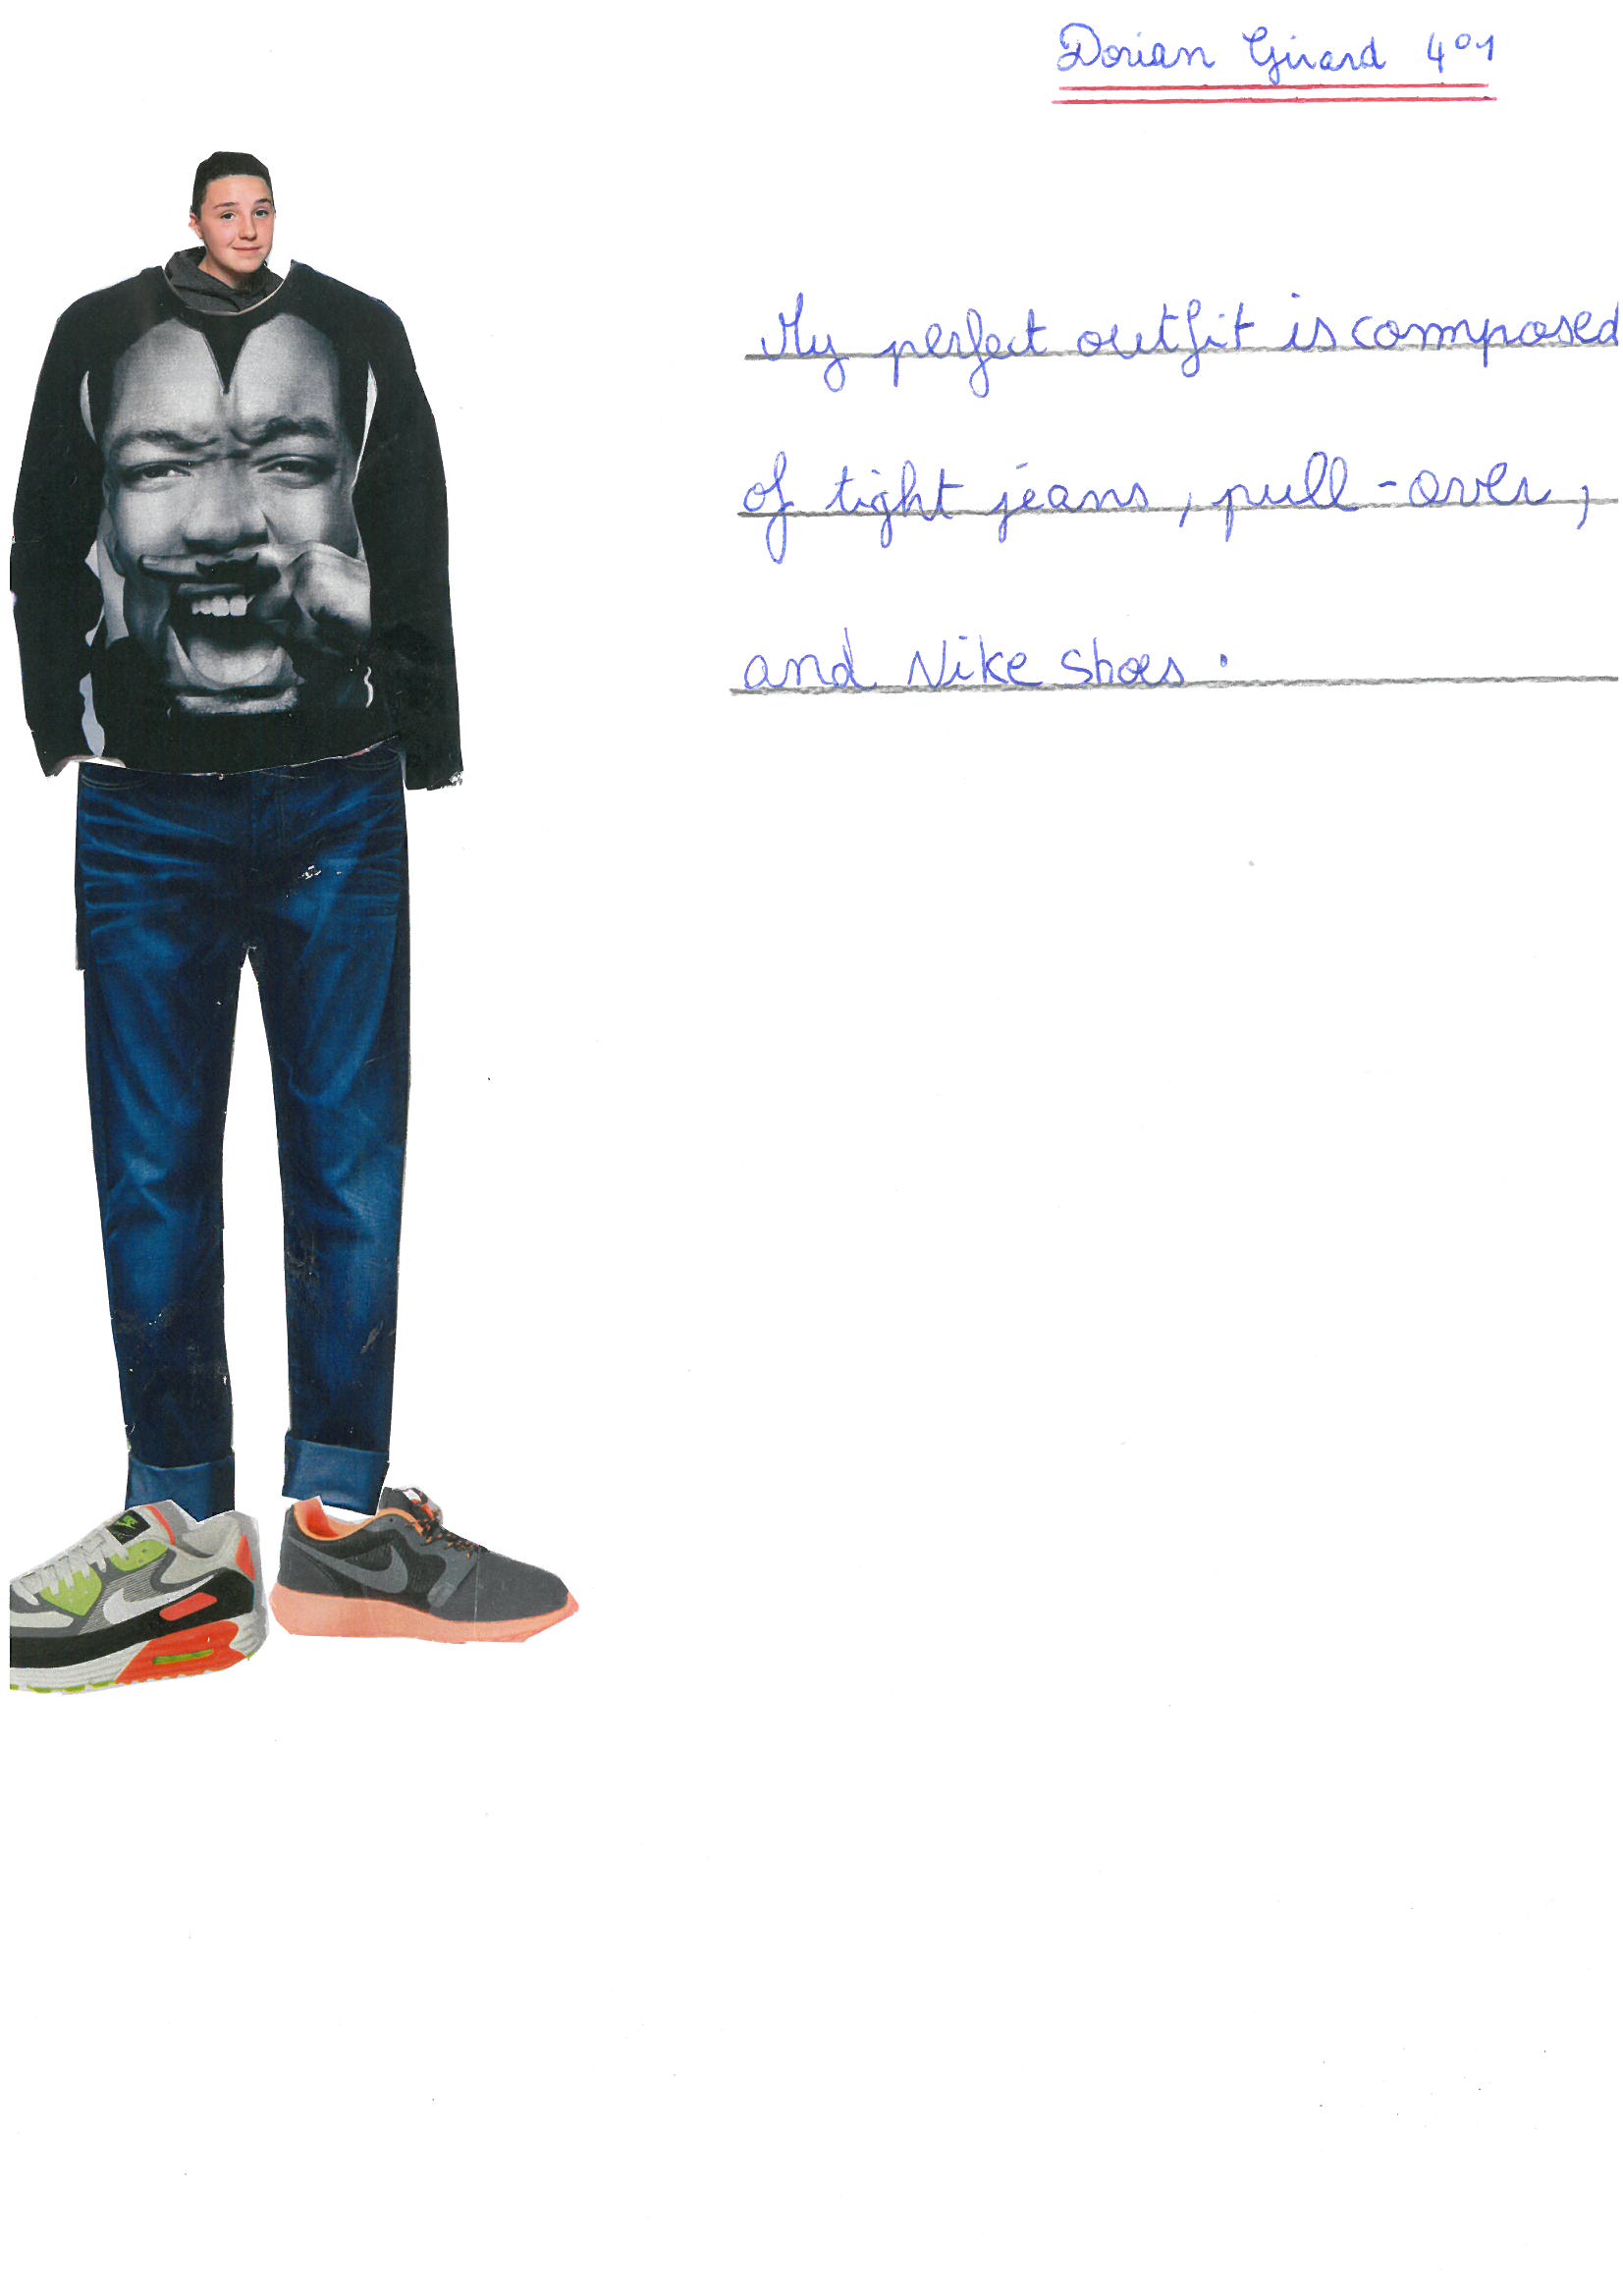 Dorian Girard 401
My perfect outfit is composed
of tight jeans, pull-over,
and Nike shoes.